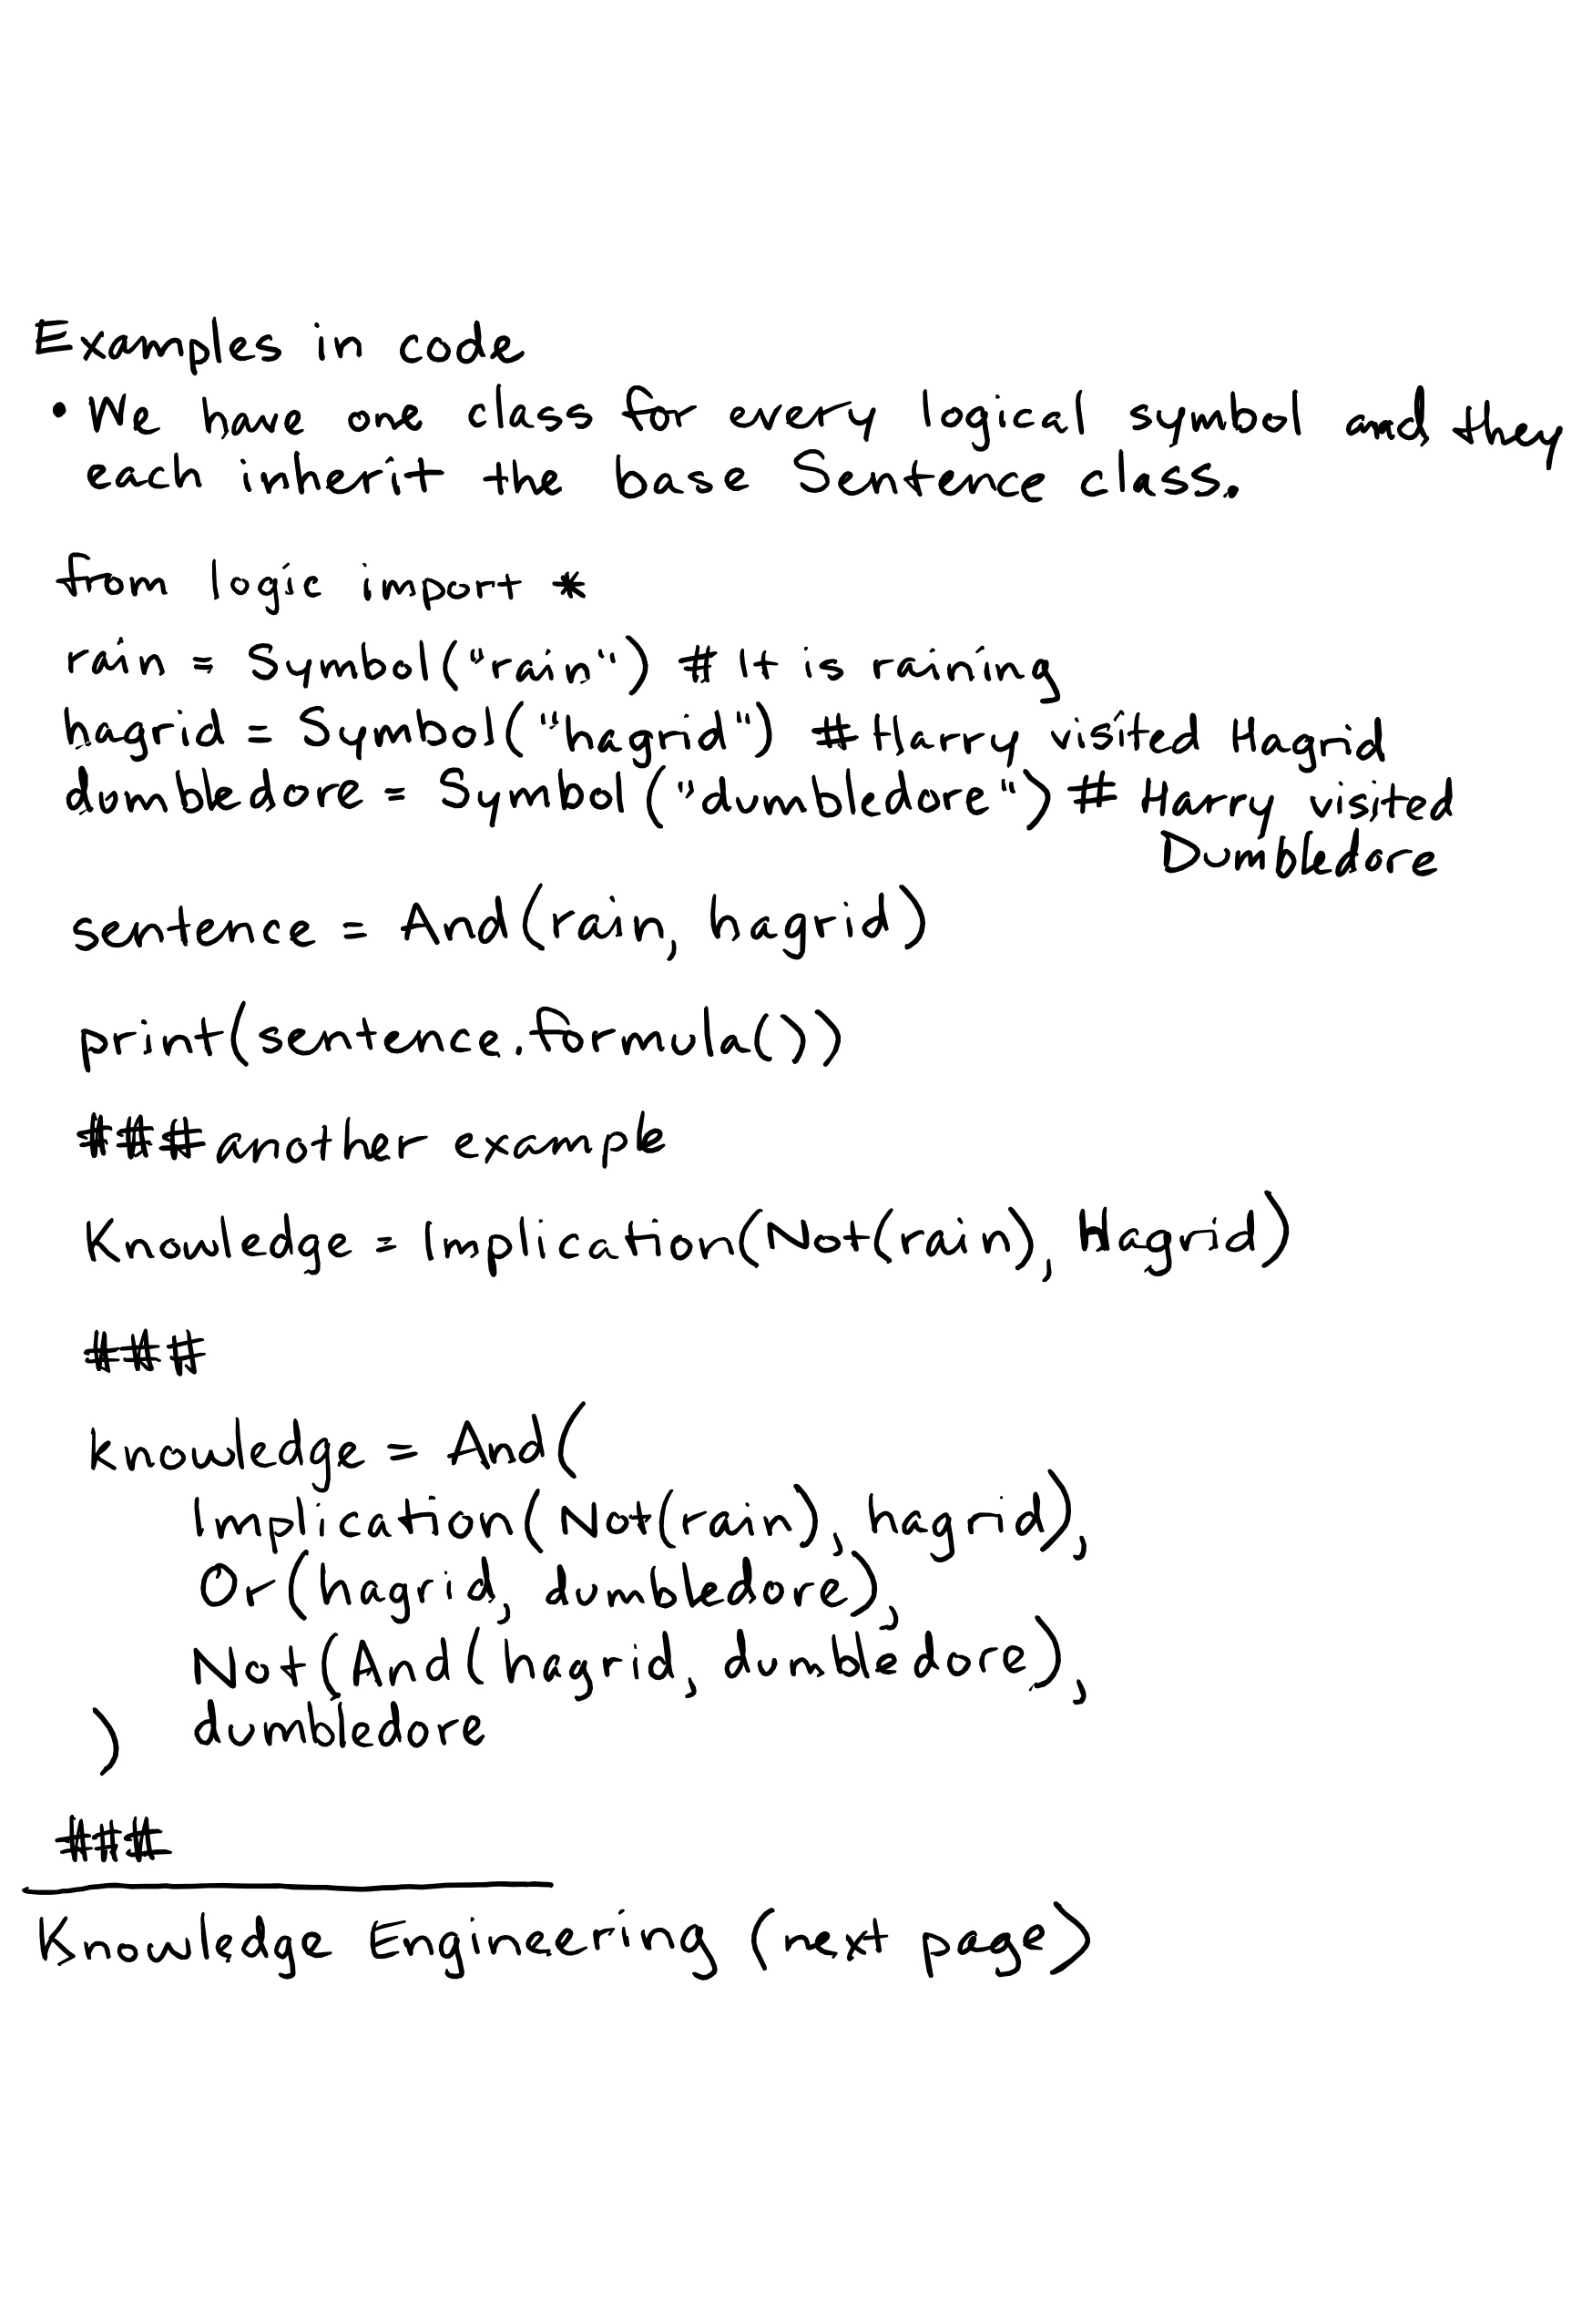 Examples in code
• We have one class for every logical symbol and they
each inherit the base Sentence class.
from logic import *
rain = Symbol("rain") # It is raining
hagrid = Symbol("hagrid") # Harry visited Hagrid
dumbledore = Symbol("dumbledore") # Harry visited
Dumbledore
sentence = And(rain, hagrid)
print(sentence.formula())
### another example
Knowledge = Implication(Not(rain), Hagrid)
###
knowledge = And(
Implication(Not(rain), hagrid),
Or(hagrid, dumbledore),
Not(And(hagrid, dumbledore),
) dumbledore
###
Knowledge Engineering (next page)